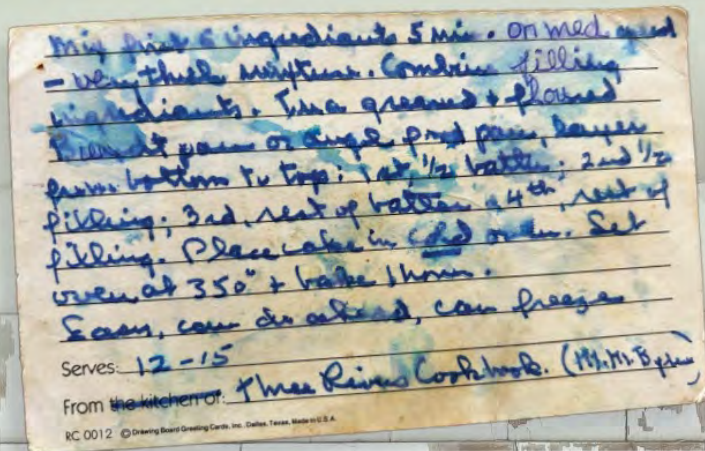 Mix first 6 ingredients 5 min. on med speed
- very thick mixture. Combine filling
ingredients. In a greased + floured
Bundt pan or angel food pan, layer
from bottom to top: 1st, 1/2 batter; 2nd 1/2
filling; 3rd, rest of batter, 4th, rest of
filling. Place cake in cold oven. Set
oven at 350° + bake 1 hour.
Easy, can do ahead, can freeze
Serves: 12-15
From the kitchen of: Three Rivers Cookbook.
RC 0012 © Drawing Board Greeting Cards, Inc. Dallas, Texas, Made in U.S.A.